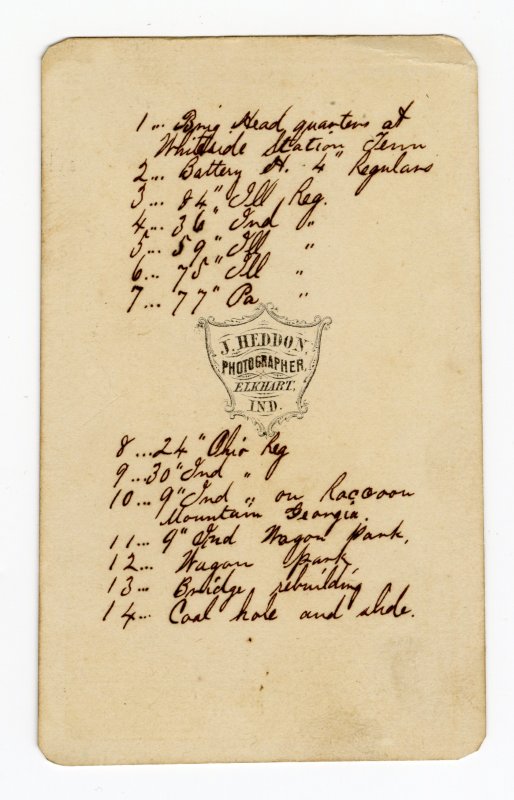 1... Brig Head quarters at
Whiteside Station Tenn
2... Battery H. 4" Regulars
3... 84" Ill Reg.
4... 36" Ind "
5... 59" Ill "
6... 75" Ill "
7... 77" Pa "
J. HEDDON,
PHOTOGRAPHER,
ELKHART,
IND.
8 ... 24" Ohio Reg
9 ... 30" Ind "
10... 9" Ind " on Raccoon
Mountain Georgia.
11... 9" Ind Wagon Park.
12... Wagon Park
13... Bridge rebuilding
14... Coal hole and slide.